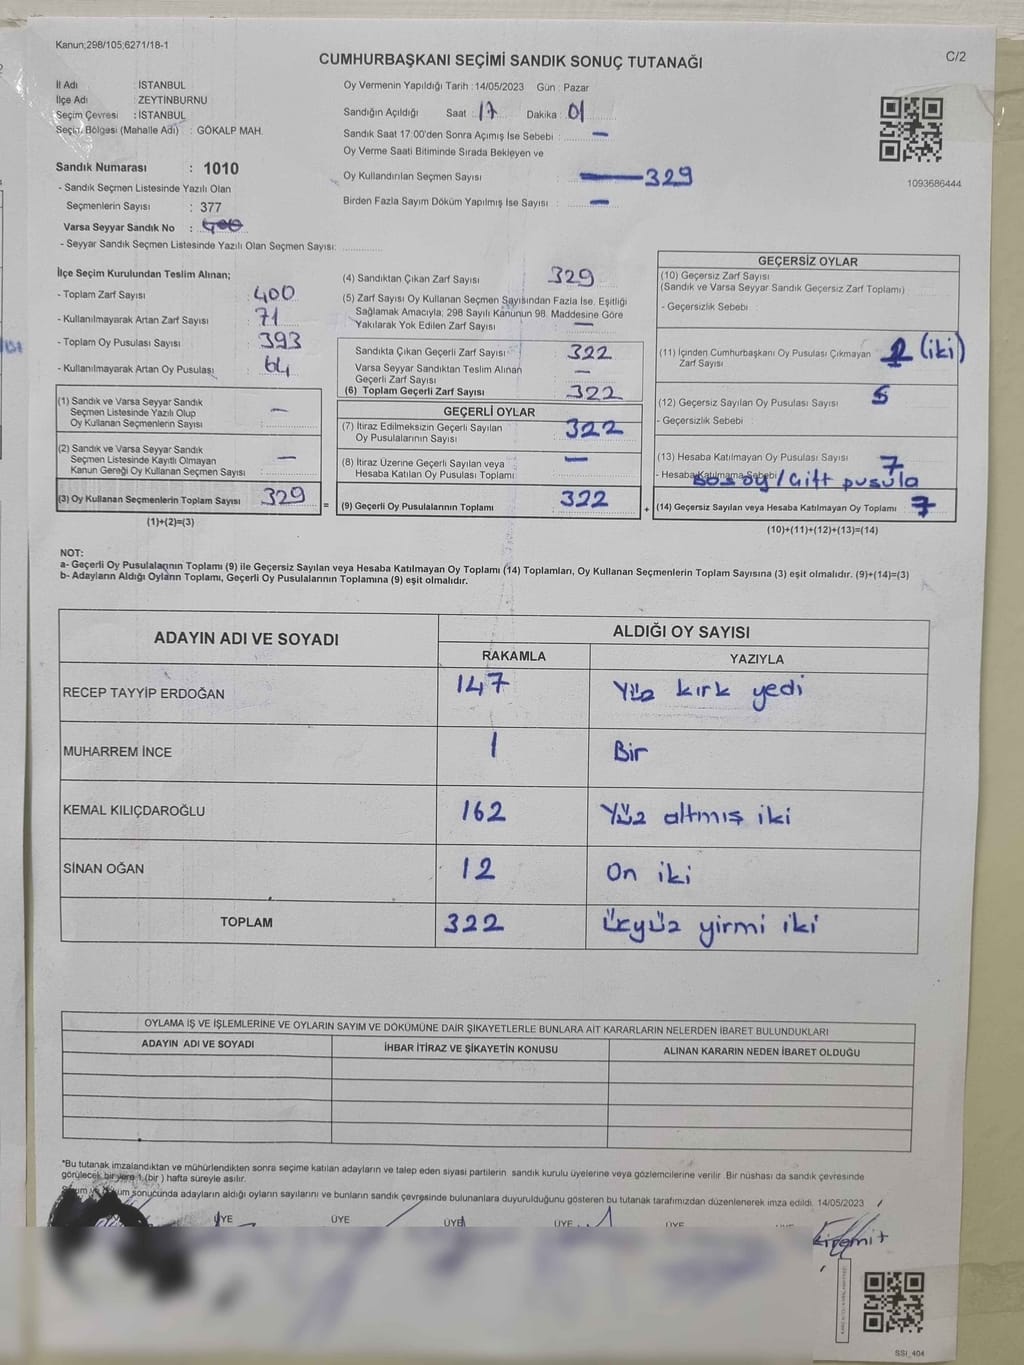 Kanun;298/105;6271/18-1
CUMHURBAŞKANI SEÇİMİ SANDIK SONUÇ TUTANAĞI
C/2
İl Adı : İSTANBUL
İlçe Adı : ZEYTİNBURNU
Seçim Çevresi : İSTANBUL
Seçim Bölgesi (Mahalle Adı) : GÖKALP MAH.
Sandık Numarası : 1010
- Sandık Seçmen Listesinde Yazılı Olan
Seçmenlerin Sayısı : 377
Varsa Seyyar Sandık No :
- Seyyar Sandık Seçmen Listesinde Yazılı Olan Seçmen Sayısı:
Oy Vermenin Yapıldığı Tarih : 14/05/2023 Gün : Pazar
Sandığın Açıldığı Saat : 17 Dakika : 01
Sandık Saat 17.00'den Sonra Açımış İse Sebebi : —
Oy Verme Saati Bitiminde Sırada Bekleyen ve
Oy Kullandırılan Seçmen Sayısı : — 329
Birden Fazla Sayım Döküm Yapılmış İse Sayısı : —
1093686444
İlçe Seçim Kurulundan Teslim Alınan;
- Toplam Zarf Sayısı 400
- Kullanılmayarak Artan Zarf Sayısı 71
- Toplam Oy Pusulası Sayısı 393
- Kullanılmayarak Artan Oy Pusulası 64
(1) Sandık ve Varsa Seyyar Sandık
Seçmen Listesinde Yazılı Olup
Oy Kullanan Seçmenlerin Sayısı —
(2) Sandık ve Varsa Seyyar Sandık
Seçmen Listesinde Kayıtlı Olmayan
Kanun Gereği Oy Kullanan Seçmen Sayısı —
(3) Oy Kullanan Seçmenlerin Toplam Sayısı 329
(1)+(2)=(3)
(4) Sandıktan Çıkan Zarf Sayısı 329
(5) Zarf Sayısı Oy Kullanan Seçmen Sayısından Fazla İse, Eşitliği
Sağlamak Amacıyla; 298 Sayılı Kanunun 98. Maddesine Göre
Yakılarak Yok Edilen Zarf Sayısı —
Sandıkta Çıkan Geçerli Zarf Sayısı 322
Varsa Seyyar Sandıktan Teslim Alınan
Geçerli Zarf Sayısı —
(6) Toplam Geçerli Zarf Sayısı 322
GEÇERLİ OYLAR
(7) İtiraz Edilmeksizin Geçerli Sayılan
Oy Pusulalarının Sayısı 322
(8) İtiraz Üzerine Geçerli Sayılan veya
Hesaba Katılan Oy Pusulası Toplamı —
= (9) Geçerli Oy Pusulalarının Toplamı 322
GEÇERSİZ OYLAR
(10) Geçersiz Zarf Sayısı
(Sandık ve Varsa Seyyar Sandık Geçersiz Zarf Toplamı)
- Geçersizlik Sebebi
(11) İçinden Cumhurbaşkanı Oy Pusulası Çıkmayan
Zarf Sayısı 2 (iki)
(12) Geçersiz Sayılan Oy Pusulası Sayısı 5
- Geçersizlik Sebebi
(13) Hesaba Katılmayan Oy Pusulası Sayısı 7
- Hesaba Katılmama Sebebi boş oy / Çift pusula
+ (14) Geçersiz Sayılan veya Hesaba Katılmayan Oy Toplamı 7
(10)+(11)+(12)+(13)=(14)
NOT:
a- Geçerli Oy Pusulalarının Toplamı (9) ile Geçersiz Sayılan veya Hesaba Katılmayan Oy Toplamı (14) Toplamları, Oy Kullanan Seçmenlerin Toplam Sayısına (3) eşit olmalıdır. (9)+(14)=(3)
b- Adayların Aldığı Oyların Toplamı, Geçerli Oy Pusulalarının Toplamına (9) eşit olmalıdır.
ADAYIN ADI VE SOYADI ALDIĞI OY SAYISI
RAKAMLA YAZIYLA
RECEP TAYYİP ERDOĞAN 147 Yüz kırk yedi
MUHARREM İNCE 1 Bir
KEMAL KILIÇDAROĞLU 162 Yüz altmış iki
SİNAN OĞAN 12 On iki
TOPLAM 322 Üçyüz yirmi iki
OYLAMA İŞ VE İŞLEMLERİNE VE OYLARIN SAYIM VE DÖKÜMÜNE DAİR ŞİKAYETLERLE BUNLARA AİT KARARLARIN NELERDEN İBARET BULUNDUKLARI
ADAYIN ADI VE SOYADI İHBAR İTİRAZ VE ŞİKAYETİN KONUSU ALINAN KARARIN NEDEN İBARET OLDUĞU
*Bu tutanak imzalandıktan ve mühürlendikten sonra seçime katılan adayların ve talep eden siyasi partilerin sandık kurulu üyelerine veya gözlemcilerine verilir. Bir nüshası da sandık çevresinde
görülecek bir yere 1 (bir) hafta süreyle asılır.
sonucunda adayların aldığı oyların sayılarını ve bunların sandık çevresinde bulunanlara duyurulduğunu gösteren bu tutanak tarafımızdan düzenlenerek imza edildi. 14/05/2023
ÜYE ÜYE ÜYE ÜYE ÜYE
SSI_404